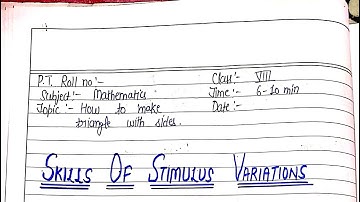 P.T. Roll no:-
Class:- VIII
Subject:- Mathematics
Time:- 6-10 min
Topic:- How to make triangle with sides.
Date:-
SKILLS OF STIMULUS VARIATIONS